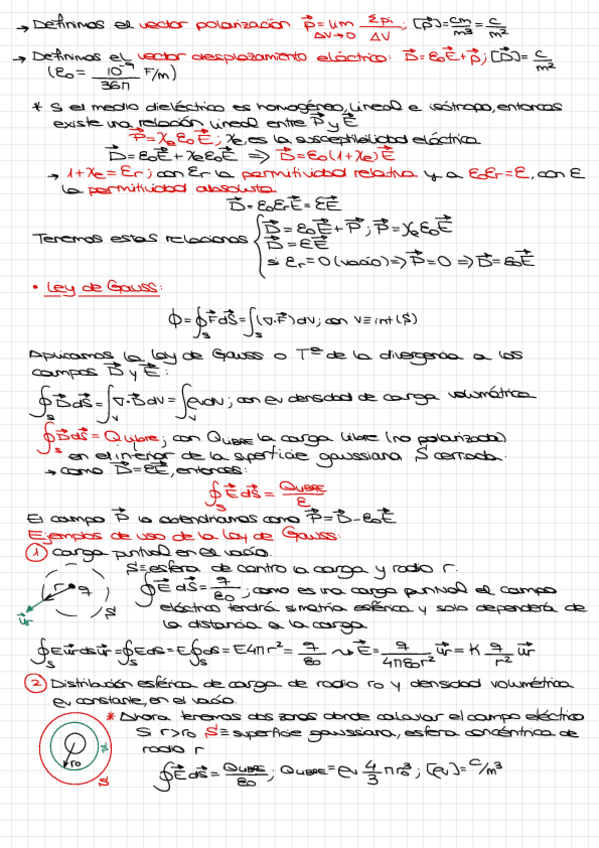 → Definimos el vector polarización P⃗ = lim ΔV→0 Σpi/ΔV ; [P⃗] = cm/m³ = c/m²
→ Definimos el vector desplazamiento eléctrico: D⃗ = ε₀E⃗ + P⃗ ; [D⃗] = c/m²
(ε₀ = 10⁻⁹/36π F/m)
* Si el medio dieléctrico es homogéneo, lineal e isótropo, entonces
existe una relación lineal entre P⃗ y E⃗
P⃗ = χₑε₀E⃗ ; χₑ es la susceptibilidad eléctrica
D⃗ = ε₀E⃗ + χₑε₀E⃗ => D⃗ = ε₀(1+χₑ)E⃗
→ 1+χₑ = εr ; con εr la permitividad relativa y a ε₀εr = ε, con ε
la permitividad absoluta
D⃗ = ε₀εrE⃗ = εE⃗
Tenemos estas relaciones { D⃗ = ε₀E⃗ + P⃗ ; P⃗ = χₑε₀E⃗
D⃗ = εE⃗
si εr = 0 (vacío) => P⃗ = 0 => D⃗ = ε₀E⃗
• Ley de Gauss:
Φ = ∮s F⃗ dS⃗ = ∫s (∇·F⃗) dv ; con V ≡ int(S)
Aplicamos la ley de Gauss o Tª de la divergencia a los
campos D⃗ y E⃗ :
∮s D⃗ dS⃗ = ∫v ∇·D⃗ dv = ∫v ρv dv ; con ρv densidad de carga volumétrica
∮s D⃗ dS⃗ = QLIBRE ; con QLIBRE la carga libre (no polarizada)
en el interior de la superficie gaussiana S cerrada.
→ como D⃗ = εE⃗, entonces:
∮s E⃗ dS⃗ = QLIBRE/ε
El campo P⃗ lo obtendríamos como P⃗ = D⃗ - ε₀E⃗
Ejemplos de uso de la Ley de Gauss:
① Carga puntual en el vacío.
S ≡ esfera de centro la carga y radio r.
∮ E⃗ dS⃗ = q/ε₀ ; como es una carga puntual el campo
eléctrico tendrá simetría esférica y solo dependerá de
la distancia a la carga
r q
S
u⃗r
∮s E u⃗r ds u⃗r = ∮s E ds = E ∮s ds = E4πr² = q/ε₀ ⇝ E⃗ = q/4πε₀r² u⃗r = K q/r² u⃗r
② Distribución esférica de carga de radio r₀ y densidad volumétrica
ρv constante, en el vacío.
* Ahora tenemos dos zonas donde calcular el campo eléctrico
Si r>r₀ S ≡ superficie gaussiana, esfera concéntrica de
radio r
r₀
S
∮ E⃗ dS⃗ = QLIBRE/ε₀ ; QLIBRE = ρv 4/3 πr₀³ ; [ρv] = C/m³